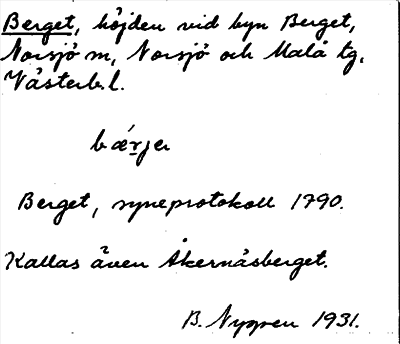 Berget, höjden vid byn Berget,
Norsjö sn, Norsjö och Malå tg,
Västerb. l.
bǽrjer
Berget, syneprotokoll 1790.
Kallas även Åkernäsberget.
B. Nygren 1931.